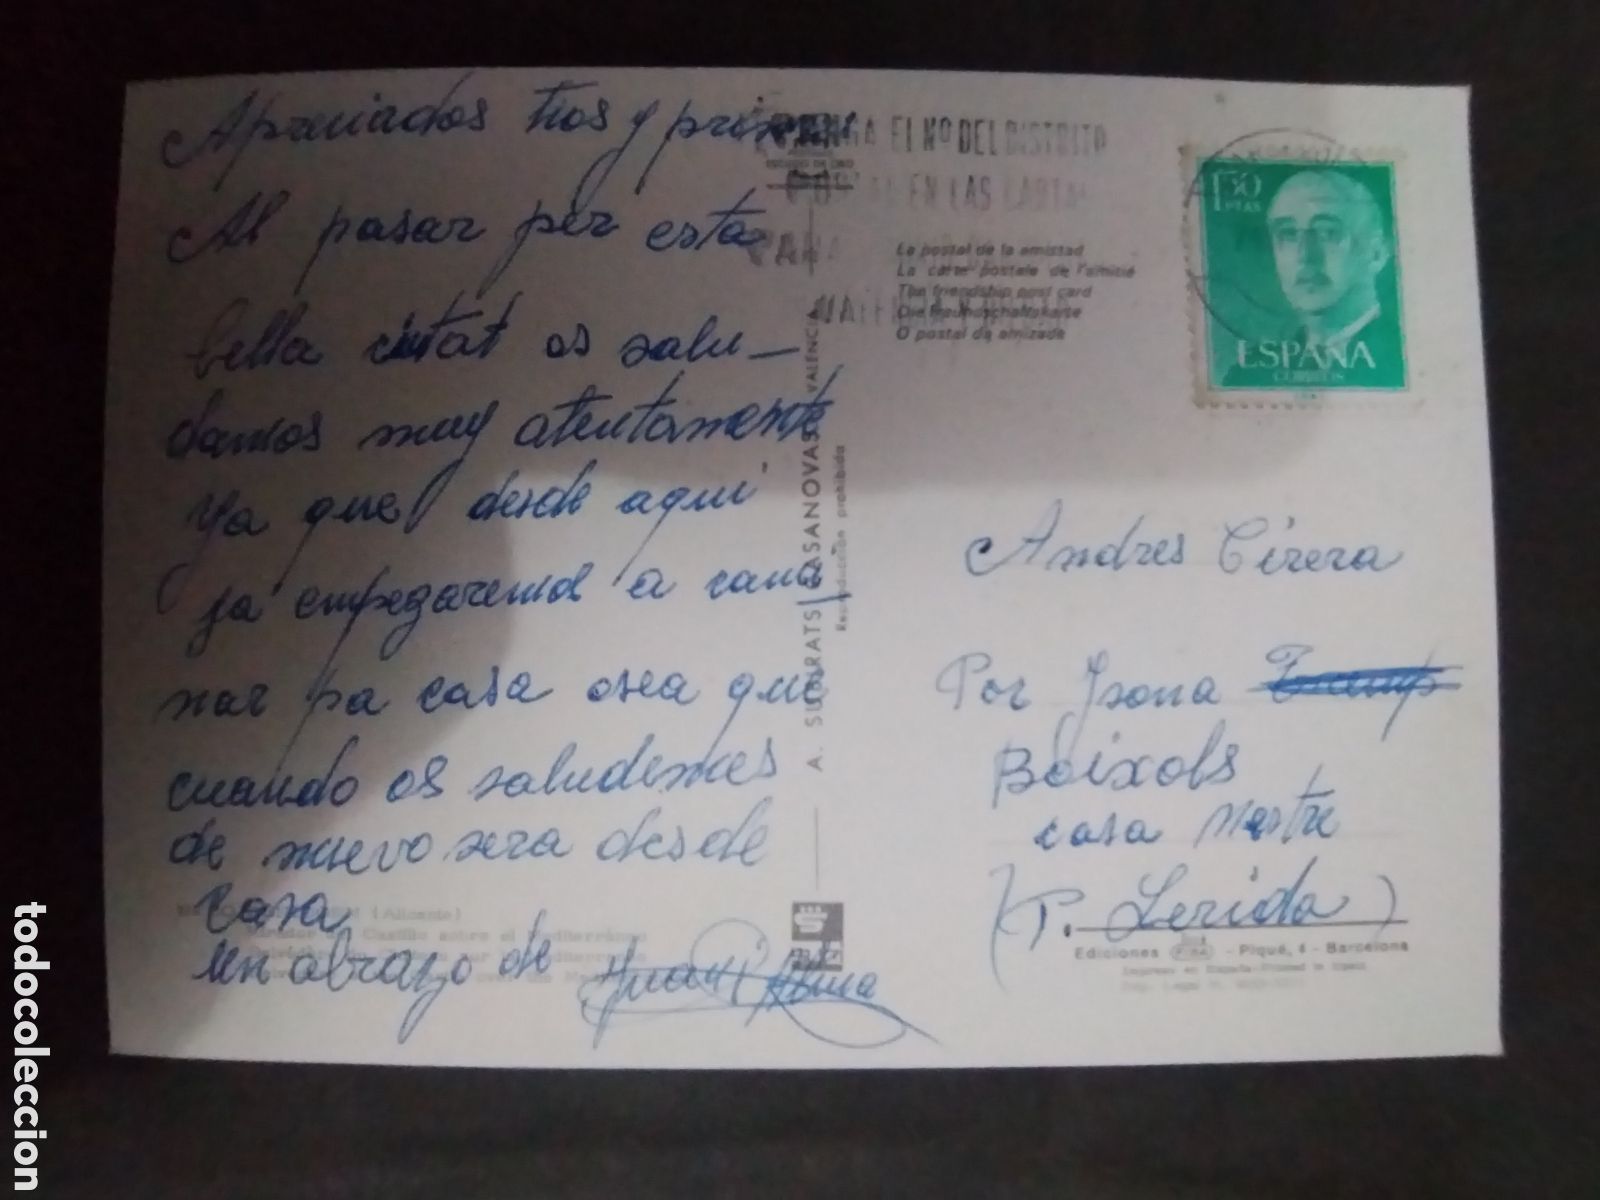 Apreciados tios y primos
Al pasar per esta
bella ciutat os salu-
damos muy atentamente
Ya que desde aqui
ya empezaremos a cami
nar pa casa osea que
cuando os saludemos
de nuevo sera desde
casa
un abrazo de Juan
(Alicante)
Castillo sobre el Mediterráneo
PONGA EL Nº DEL DISTRITO
POSTAL EN LAS CARTAS
La postal de la amistad
La carte postale de l'amitié
The friendship post card
Die Freundschaftskarte
O postal da amizade
1'50
PTAS
ESPAÑA
CORREOS
A. SUBIRATS CASANOVAS VALENCIA
Reproducción prohibida
Andres Cirera
Por Isona Tremp
Boixols
casa Mestre
(P. Lerida)
Ediciones FISA - Piqué, 4 - Barcelona
Impreso en España - Printed in Spain
todocoleccion